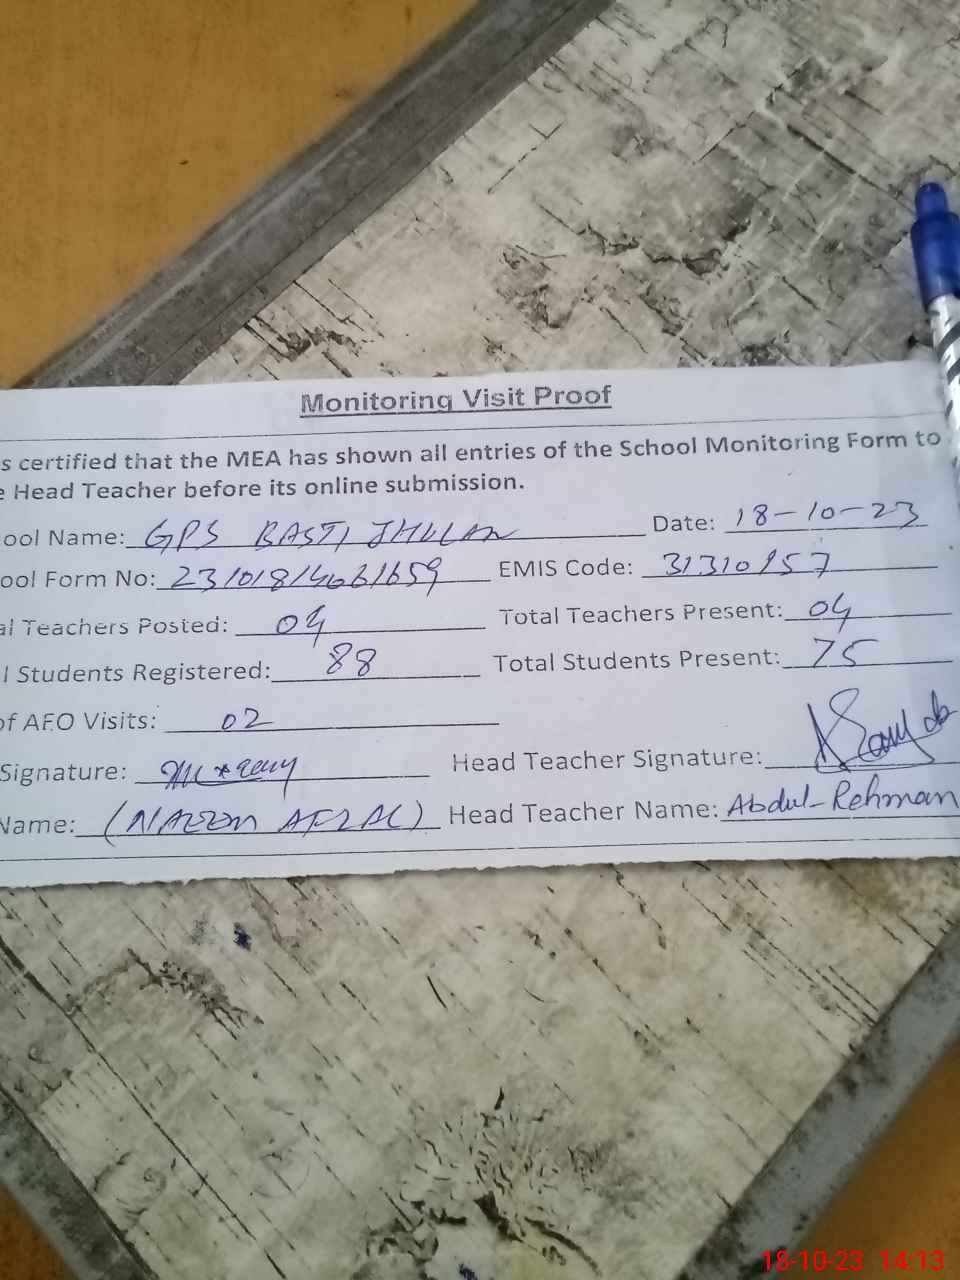 Monitoring Visit Proof
s certified that the MEA has shown all entries of the School Monitoring Form to
e Head Teacher before its online submission.
ool Name: GPS BASTI JHULLAN Date: 18-10-23
ool Form No: 231018144661659 EMIS Code: 31310157
al Teachers Posted: 04 Total Teachers Present: 04
l Students Registered: 88 Total Students Present: 75
of AEO Visits: 02
Signature: Head Teacher Signature:
Name: (NAEEM AFZAL) Head Teacher Name: Abdul-Rehman
18-10-23 14:13